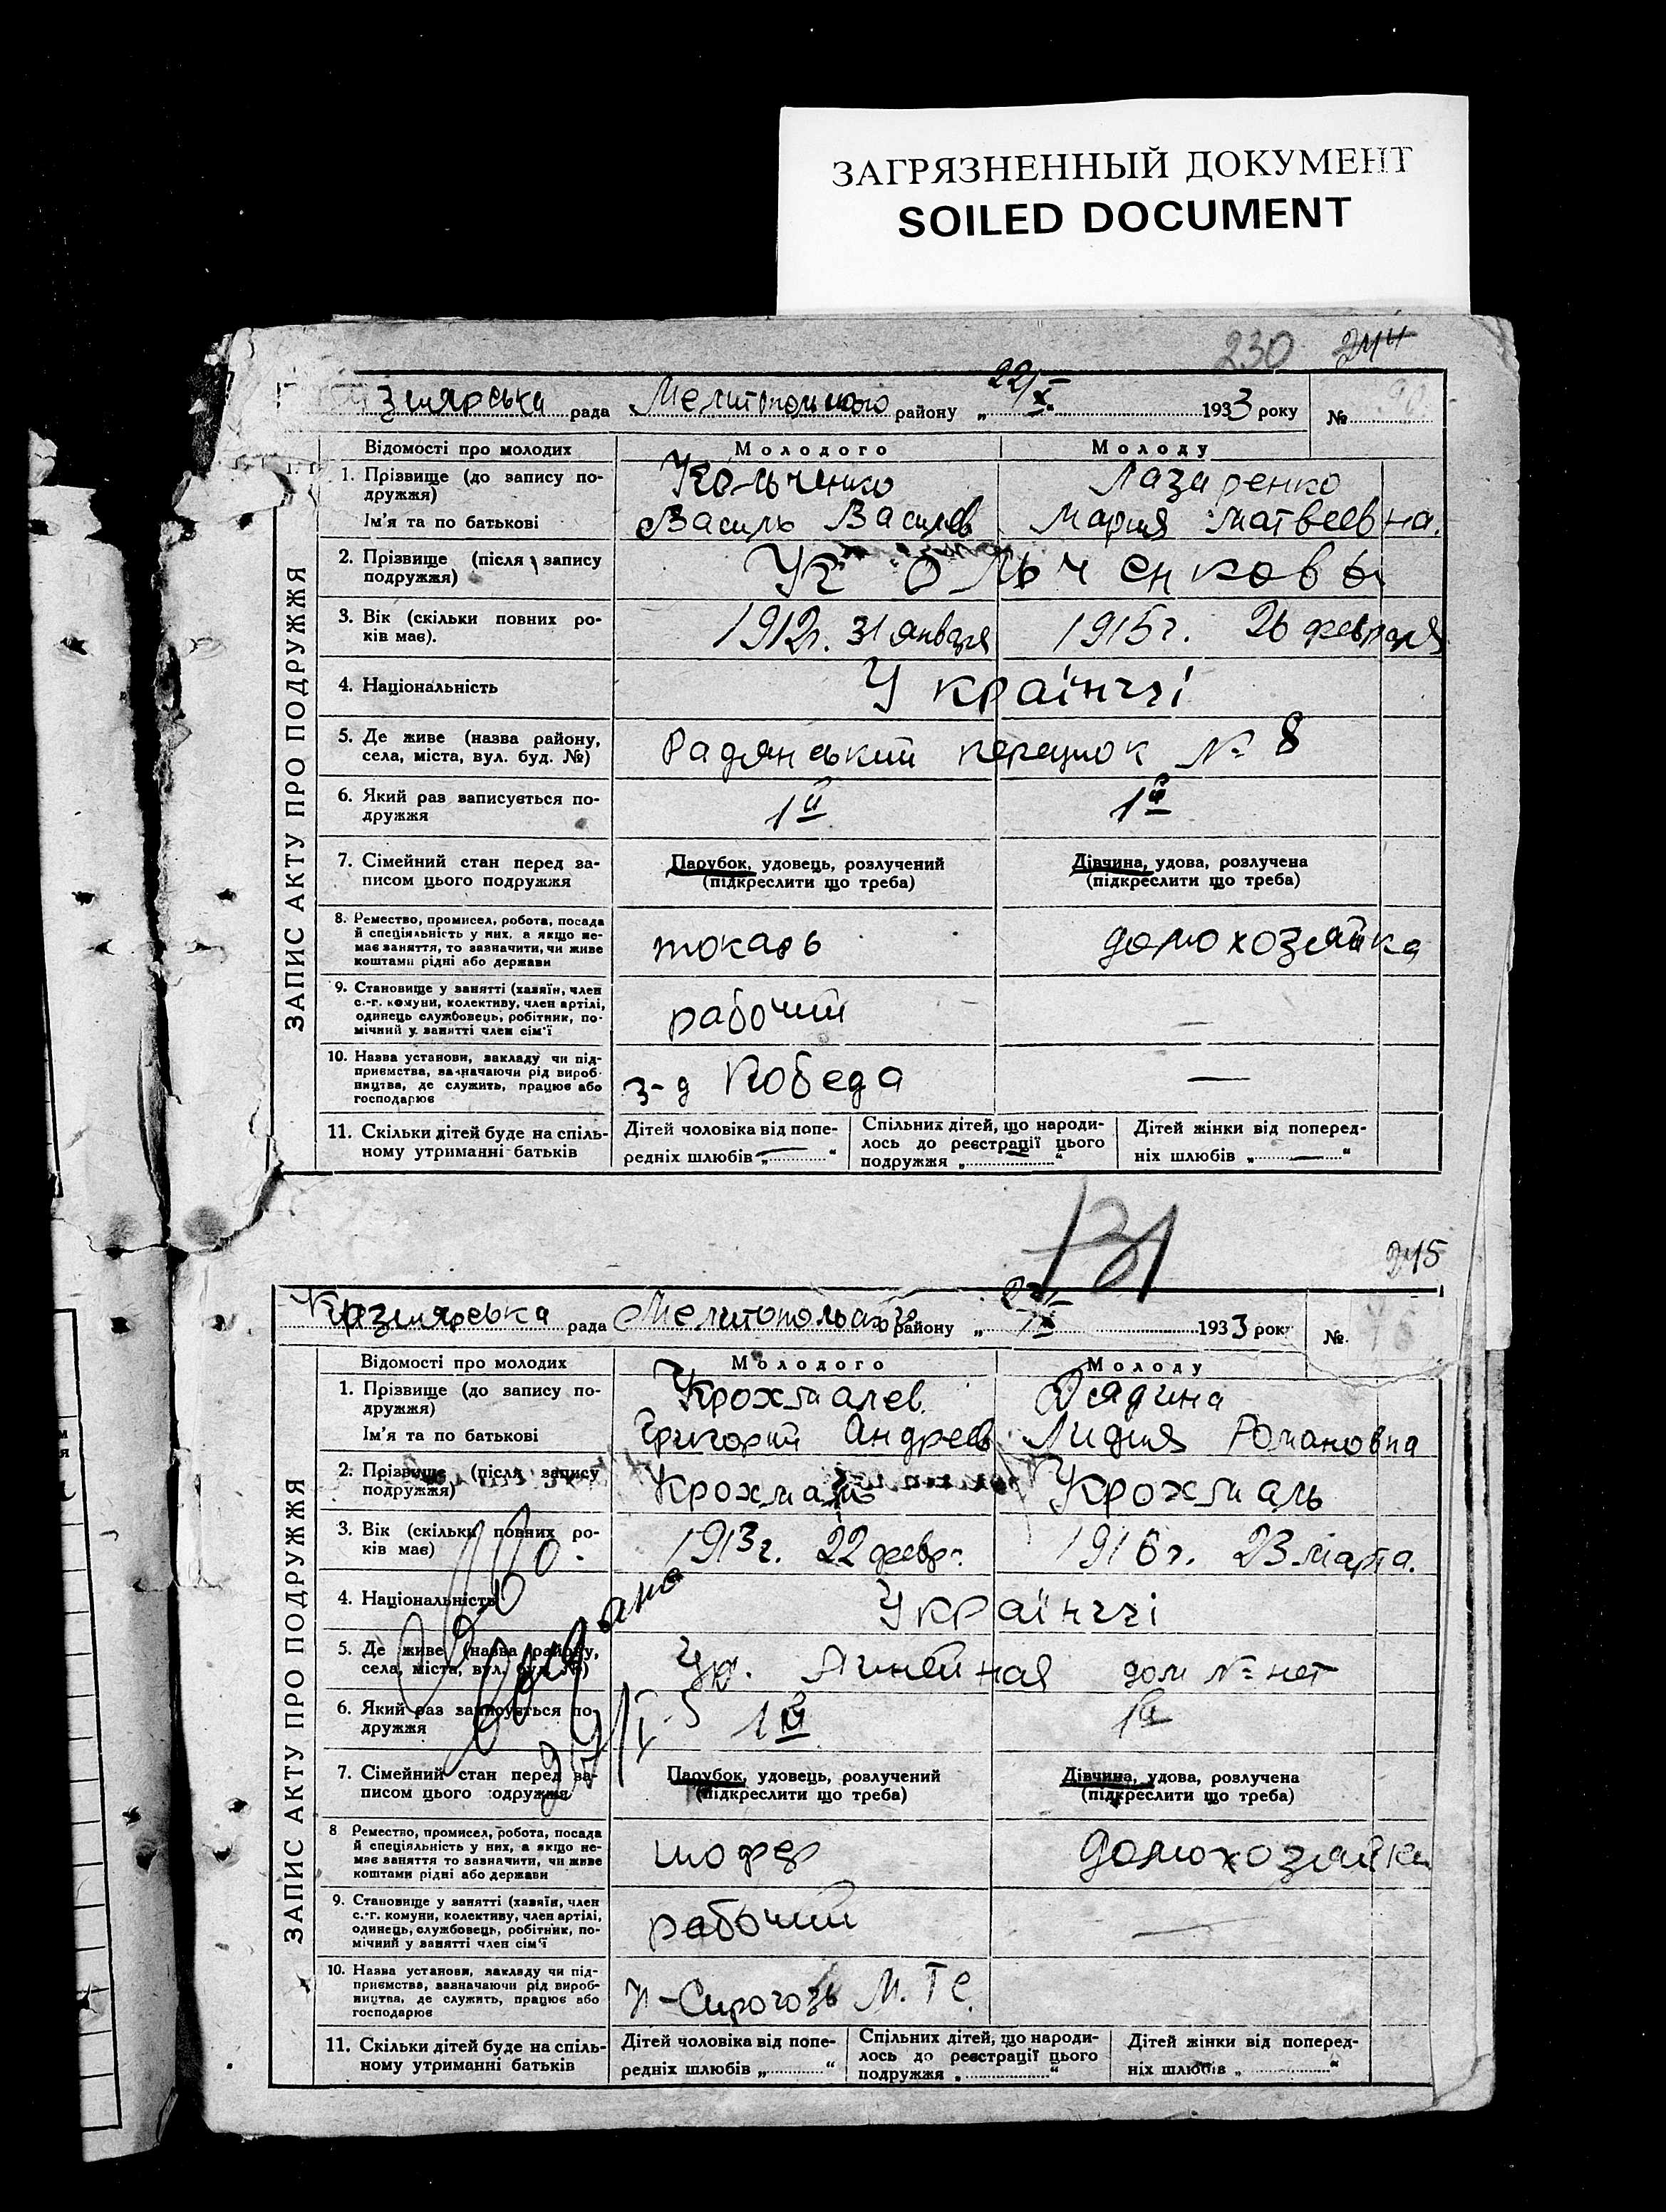 ЗАГРЯЗНЕННЫЙ ДОКУМЕНТ
SOILED DOCUMENT
230 244
рада Мелитопольського району „22/X 1933 року №
ЗАПИС АКТУ ПРО ПОДРУЖЖЯ
Відомості про молодих Молодого Молоду
1. Прізвище (до запису по-
дружжя) Кольченко Лазаренко
Ім'я та по батькові Василь Василев Мария Матвеевна.
2. Прізвище (після запису
подружжя) Кольченковы
3. Вік (скільки повних ро-
ків має). 1912г. 31 января 1915г. 26 февраля
4. Національність Українці
5. Де живе (назва району,
села, міста, вул. буд. №) Радянський № 8
6. Який раз записується по-
дружжя 1й 1й
7. Сімейний стан перед за-
писом цього подружжя
Парубок, удовець, розлучений
(підкреслити що треба)
Дівчина, удова, розлучена
(підкреслити що треба)
8. Ремество, промисел, робота, посада
й спеціяльність у них, а якщо не-
має заняття, то зазначити, чи живе
коштами рідні або держави
токарь домохозяйка
9. Становище у занятті (хазяїн, член
с.-г. комуни, колективу, член артілі,
одинець службовець, робітник, по-
мічний у занятті член сім'ї
рабочий —
10. Назва установи, закладу чи під-
приємства, зазначаючи рід вироб-
ництва, де служить, працює або
господарює
з-д Победа —
11. Скільки дітей буде на спіль-
ному утриманні батьків
Дітей чоловіка від попе-
редніх шлюбів „—“
Спільних дітей, що народи-
лось до реєстрації цього
подружжя „—“
Дітей жінки від поперед-
ніх шлюбів „—“
131
245
рада Мелитопольського району „ 1933 року №
ЗАПИС АКТУ ПРО ПОДРУЖЖЯ
Відомості про молодих Молодого Молоду
1. Прізвище (до запису по-
дружжя) Крохмалев
Ім'я та по батькові Григорий Андреев Лидия Романовна
2. Прізвище (після запису
подружжя) Крохмаль Крохмаль
3. Вік (скільки повних ро-
ків має) 1913г. 22 февр. 1916г. 23 марта.
4. Національність Українці
5. Де живе (назва району,
села, міста, вул. буд. №) Ул. Линейная дом № нет
6. Який раз записується по-
дружжя 1й 1й
7. Сімейний стан перед за-
писом цього подружжя
Парубок, удовець, розлучений
(підкреслити що треба)
Дівчина, удова, розлучена
(підкреслити що треба)
8 Ремество, промисел, робота, посада
й спеціяльність у них, а якщо не-
має заняття то зазначити, чи живе
коштами рідні або держави
шофер домохозяйка
9. Становище у занятті (хазяїн, член
с.-г. комуни, колективу, член артілі,
одинець, службовець, робітник, по-
мічний у занятті член сім'ї
рабочий —
10. Назва установи, закладу чи під-
приємства, зазначаючи рід вироб-
ництва, де служить, працює або
господарює
М.Т.С.
11. Скільки дітей буде на спіль-
ному утриманні батьків
Дітей чоловіка від попе-
редніх шлюбів „“
Спільних дітей, що народи-
лось до реєстрації цього
подружжя „“
Дітей жінки від поперед-
ніх шлюбів „“